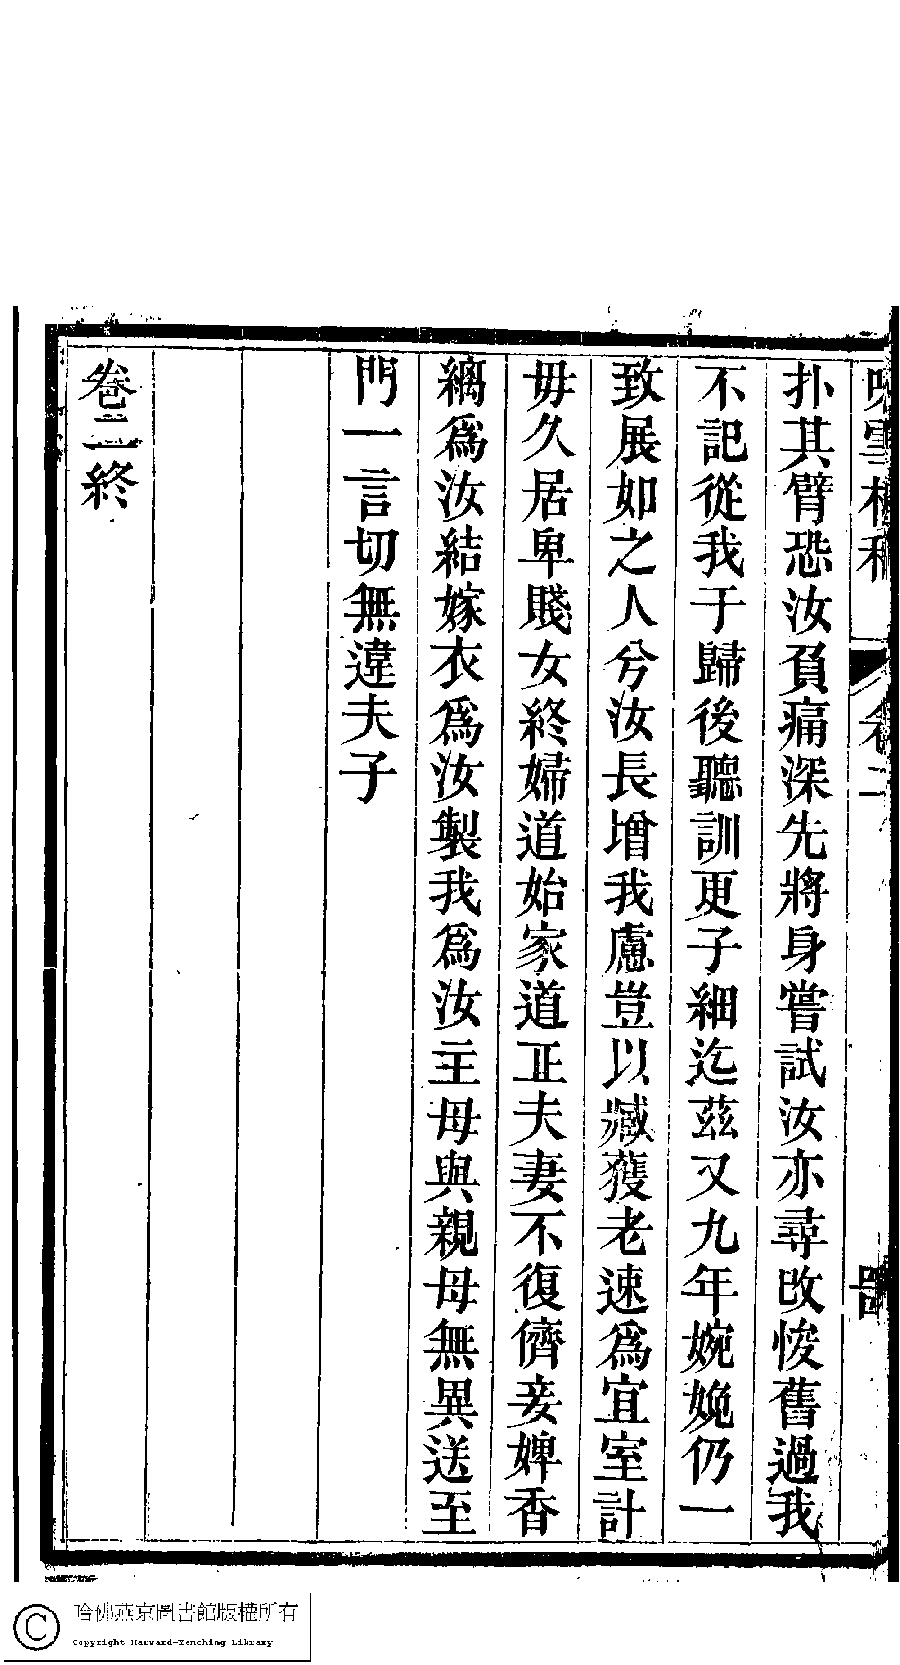 雪
卷二
扑其臂恐汝負痛深先將身嘗試汝亦尋改悛舊過我
不記從我于歸後聽訓更子細迄茲又九年婉娩仍一
致展如之人兮汝長增我慮豈以臧獲老速爲宜室計
毋久居卑賤女終婦道始家道正夫妻不復儕妾婢香
縭爲汝結嫁衣爲汝製我爲汝主母與親母無異送至
門一言切無違夫子
卷二終
哈佛燕京圖書館版權所有
Copyright Harvard-Yenching Library